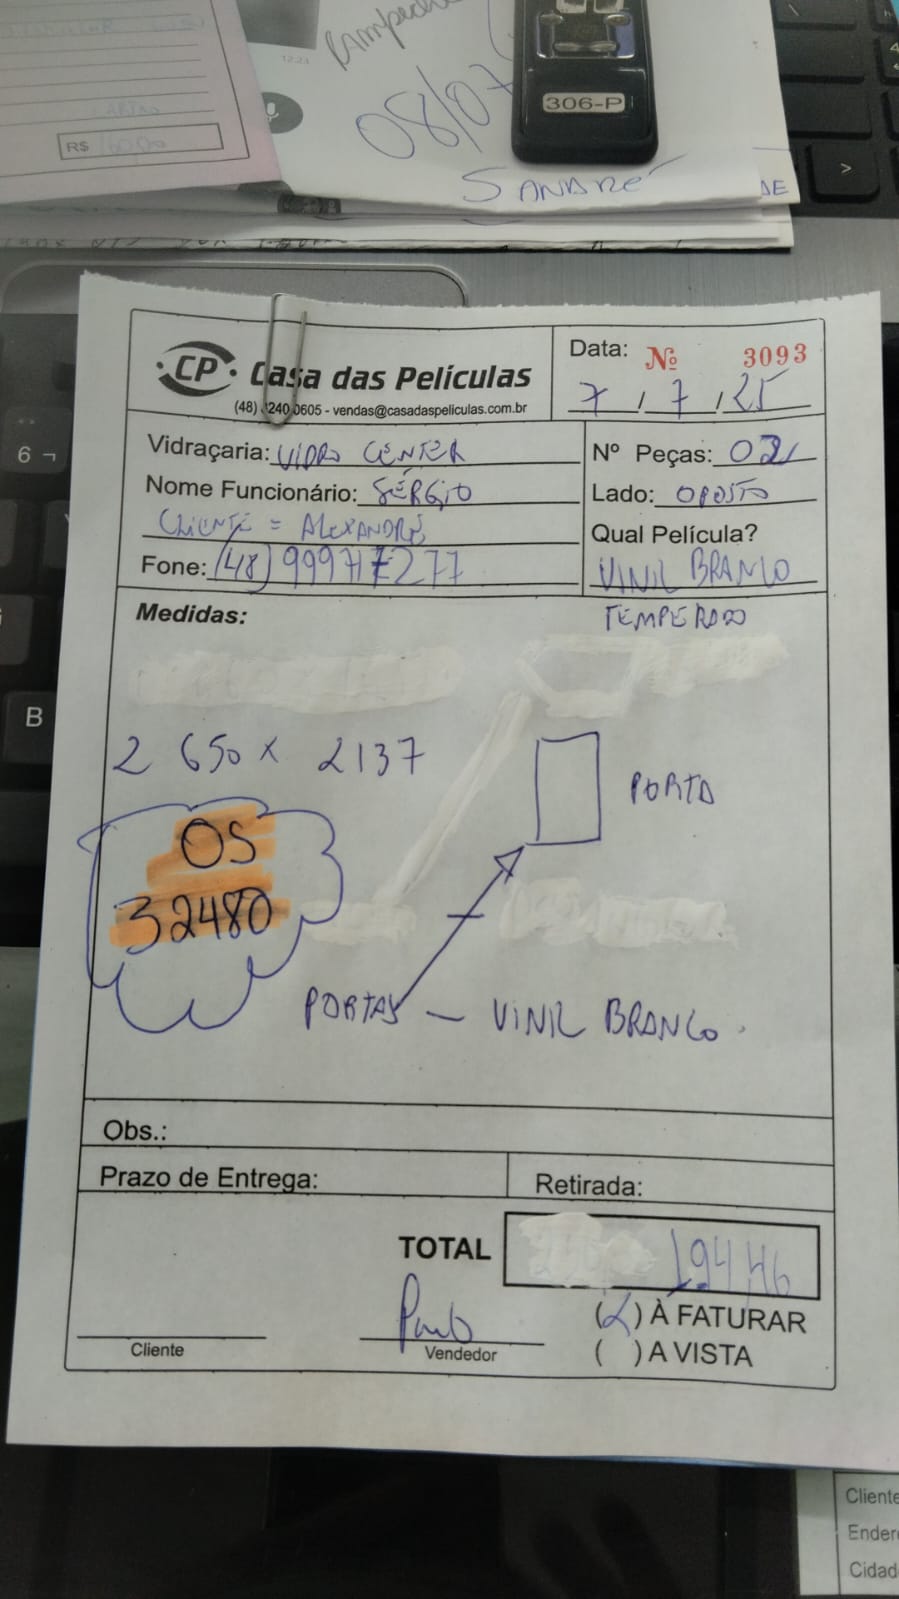 12:23
08/07
306-P
R$
SANDRÉ
CP Casa das Películas
(48) 3240 0605 - vendas@casadaspeliculas.com.br
Data: Nº 3093
7 / 7 / 25
Vidraçaria: VIDRO CENTER
Nº Peças: 02
Nome Funcionário: SÉRGIO
Lado: OPOSTO
CLIENTE = ALEXANDRE
Qual Película?
Fone: (48)
VINIL BRANCO
Medidas:
TEMPERADO
2 650 x 2137
PORTA
OS
32480
PORTAS — VINIL BRANCO.
Obs.:
Prazo de Entrega:
Retirada:
TOTAL 194,46
(X) À FATURAR
( ) A VISTA
Cliente
Vendedor
6 ¬
B
>
Cliente
Ender
Cidad